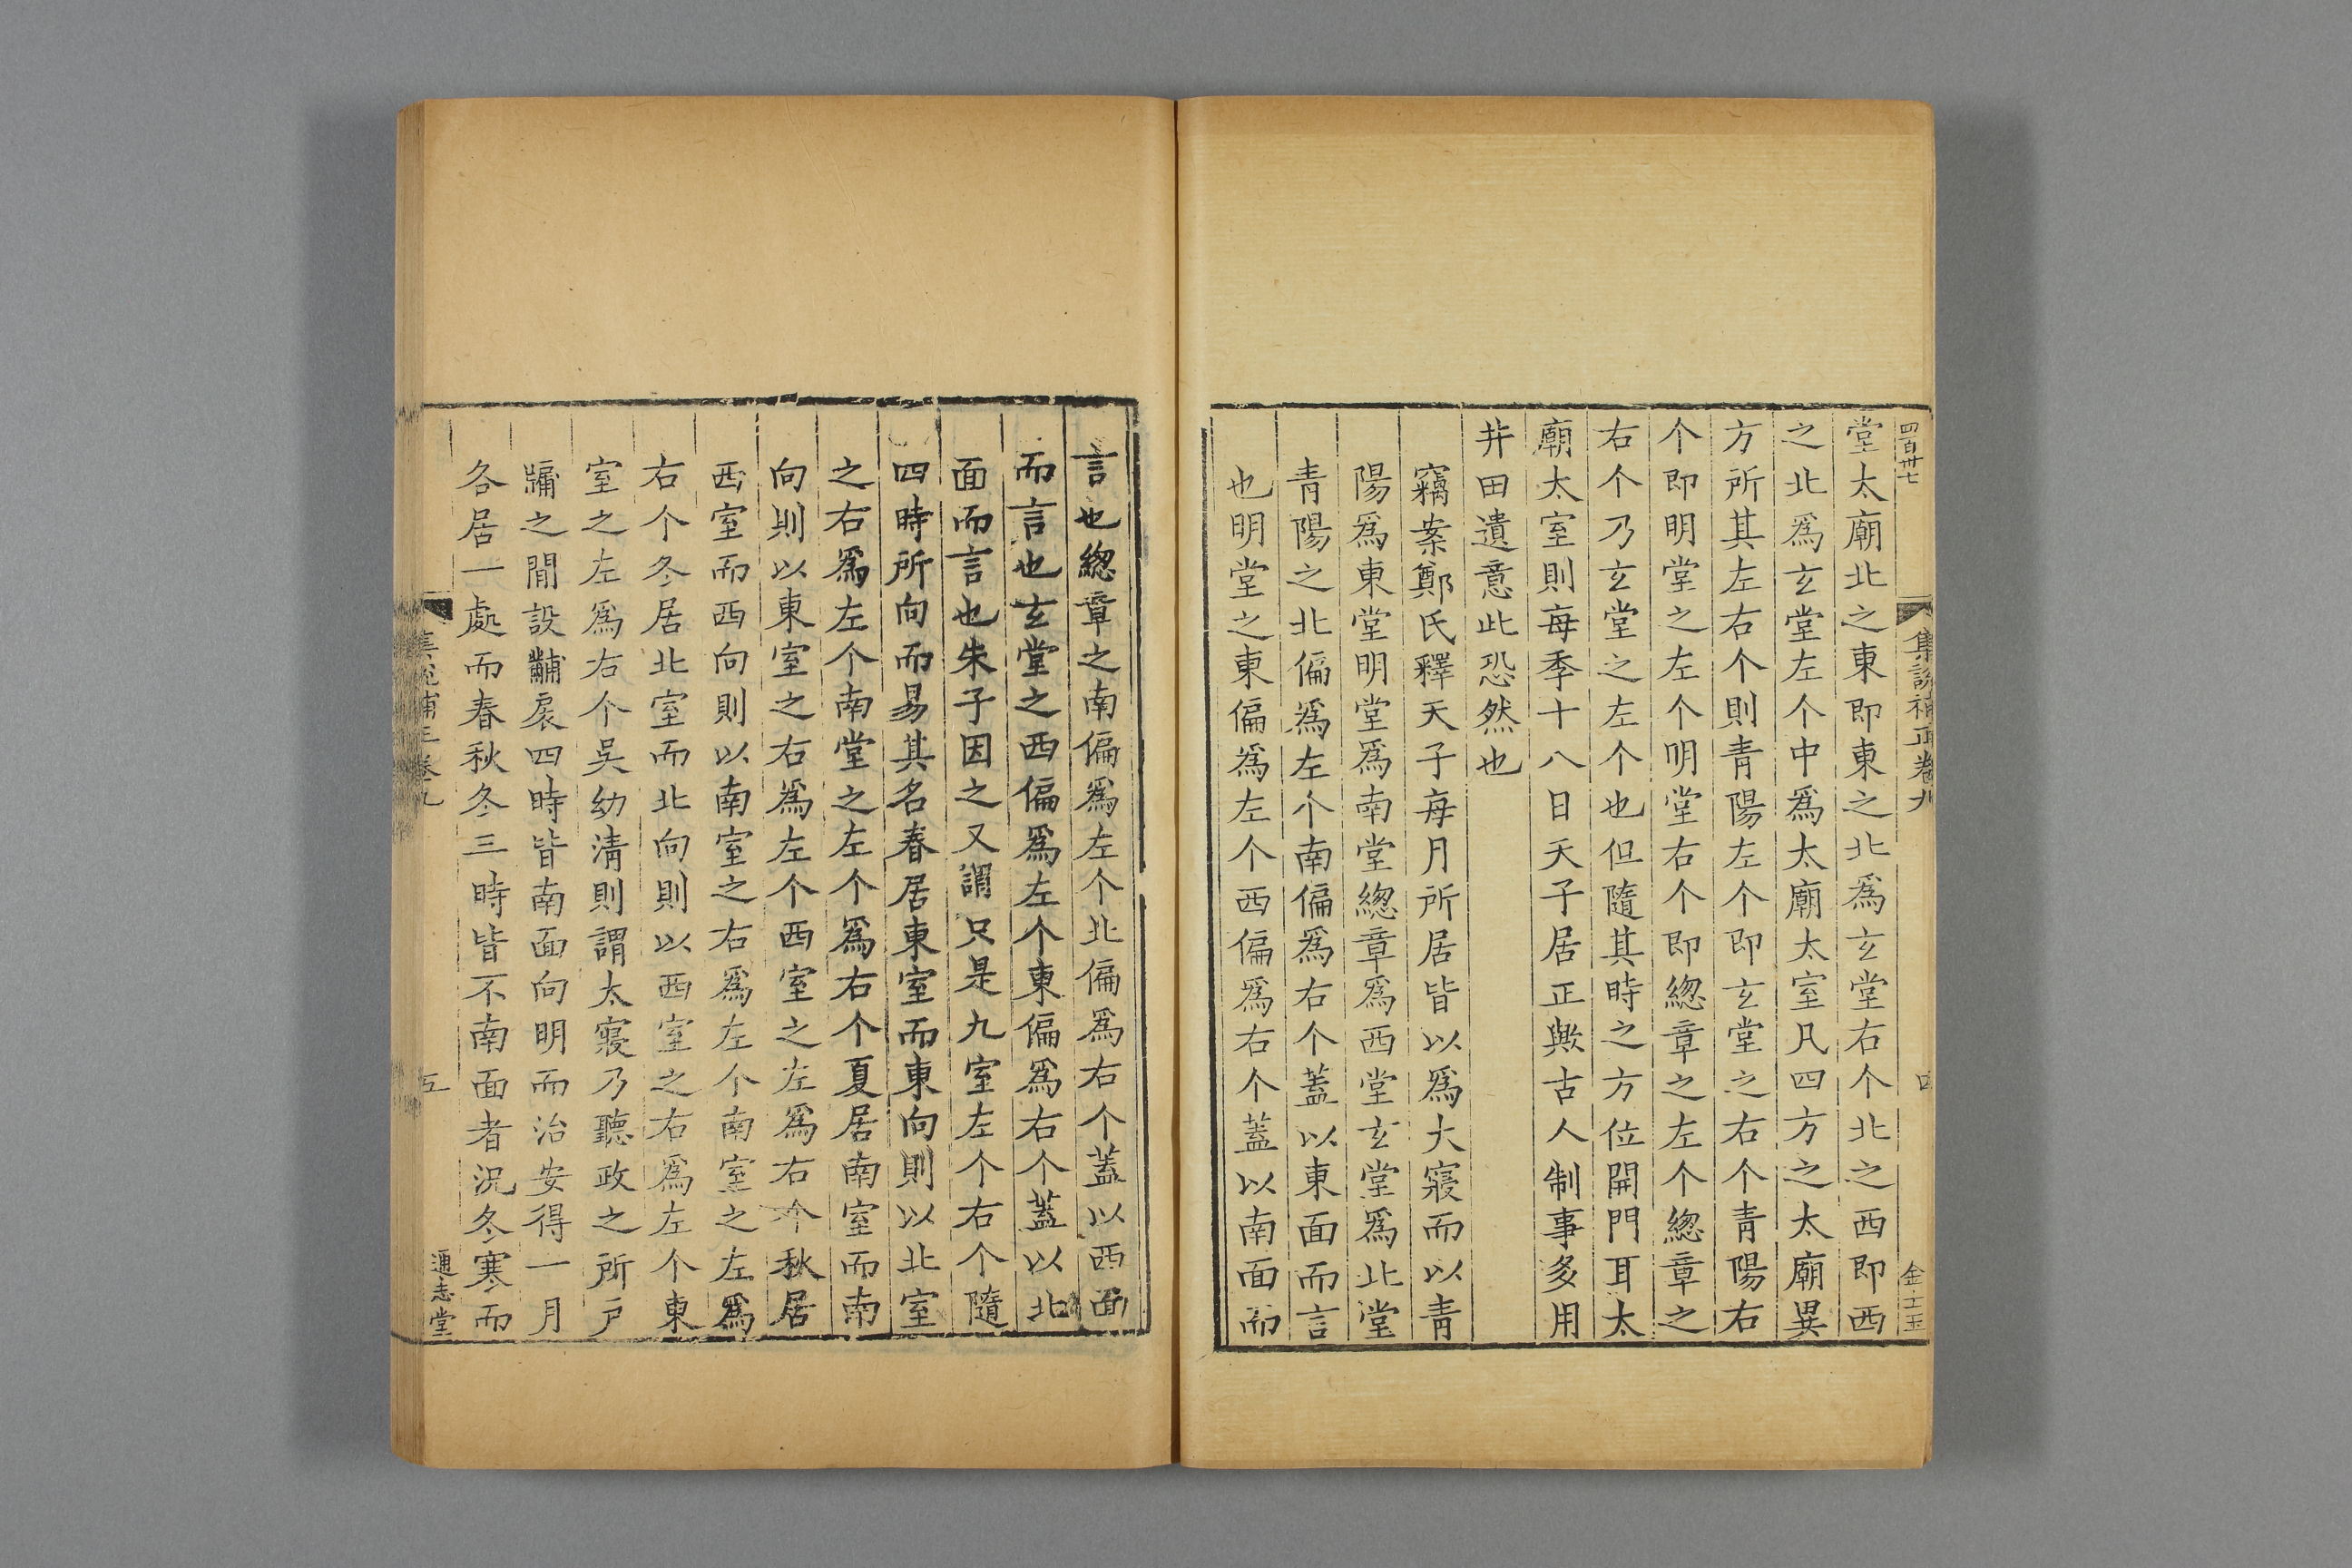 四百卅七
集說補正卷九
四
金士玉
堂太廟北之東即東之北爲玄堂右个北之西即西
之北爲玄堂左个中爲太廟太室凡四方之太廟異
方所其左右个則青陽左个即玄堂之右个青陽右
个即明堂之左个明堂右个即緫章之左个緫章之
右个乃玄堂之左个也但隨其時之方位開門耳太
廟太室則每季十八日天子居正歟古人制事多用
井田遺意此恐然也
竊案鄭氏釋天子每月所居皆以爲大寢而以青
陽爲東堂明堂爲南堂緫章爲西堂玄堂爲北堂
青陽之北偏爲左个南偏爲右个蓋以東面而言
也明堂之東偏爲左个西偏爲右个蓋以南面而
言也緫章之南偏爲左个北偏爲右个蓋以西面
而言也玄堂之西偏爲左个東偏爲右个蓋以北
面而言也朱子因之又謂只是九室左个右个隨
四時所向而易其名春居東室而東向則以北室
之右爲左个南堂之左个爲右个夏居南室而南
向則以東室之右爲左个西室之左爲右个秋居
西室而西向則以南室之右爲左个南室之左爲
右个冬居北室而北向則以西室之右爲左个東
室之左爲右个吳幼清則謂太寢乃聽政之所戶
牖之間設黼扆四時皆南面向明而治安得一月
各居一處而春秋冬三時皆不南面者況冬寒而
集說補正卷九
五
通志堂